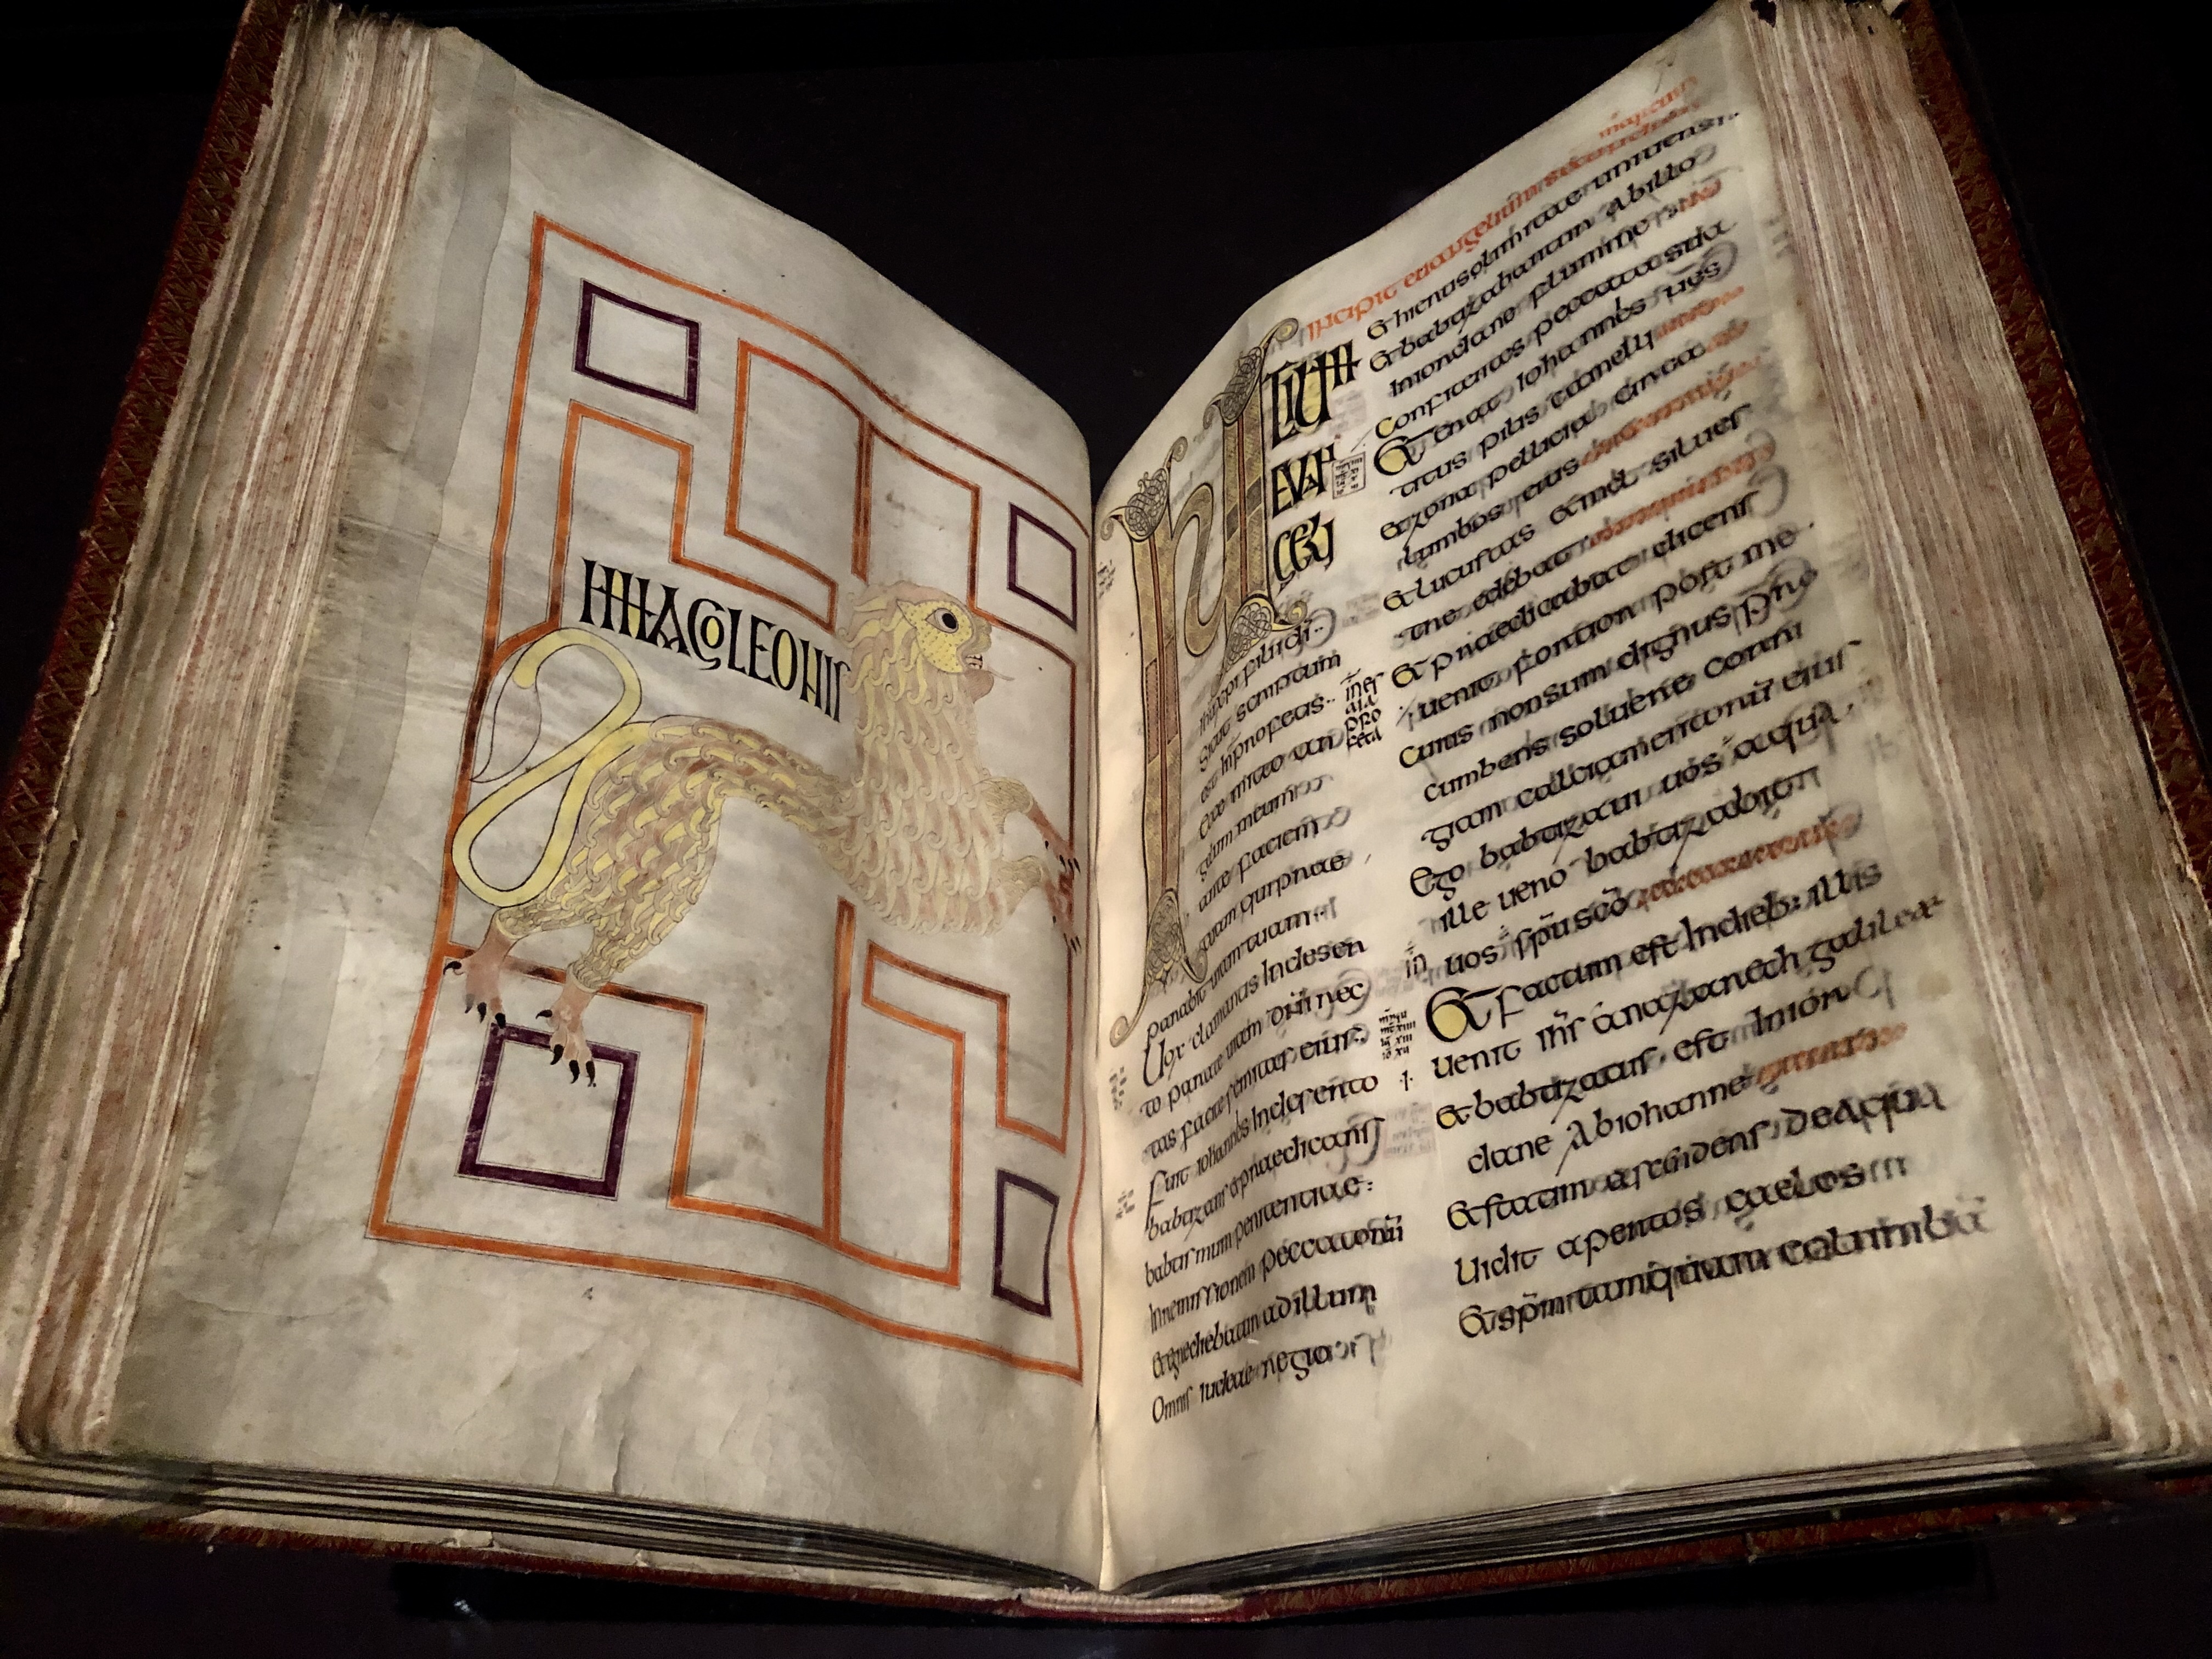 IMAGO LEONIS
Incipit euangelium secundum marcum
INITIUM
EVAN
GELII
ihu xpi filii di
Sicut scriptum
est In profetas
Ecce mitto an
gelum meum
ante faciem
tuam qui prae
parabit uiam tuam
Uox clamantis In deser
to parate uiam dni rec
tas facite semitas eius
Fuit iohannes In deserto
babtizans et praedicans
babtismum penitentiae
In remissionem peccatorū
& egrediebatur ad illum
Omnis iudeae regio
in es
aia
pro
feta
& hierusolimitae uniuersi
& babtizabantur Ab illo
In iordane flumine
Confitentes peccata sua
& erat Iohannes ues
titus pilis cameli
& zona pellicia circa
lumbos eius
& lucustas & mel silues
tre edebat
& praedicabat dicens
uenit fortior post me
cuius non sum dignus pro
cumbens soluere corri
giam calciamentorū eius
Ego babtizaui uos aqua
ille uero babtizabit
in
uos spu sco
& factum est In dieb: illis
uenit ihs a nazareth galileae
& babtizatus est In ior
dane Ab iohanne
& statim ascendens de aqua
Uidit apertos caelos
& spm tamquam columba